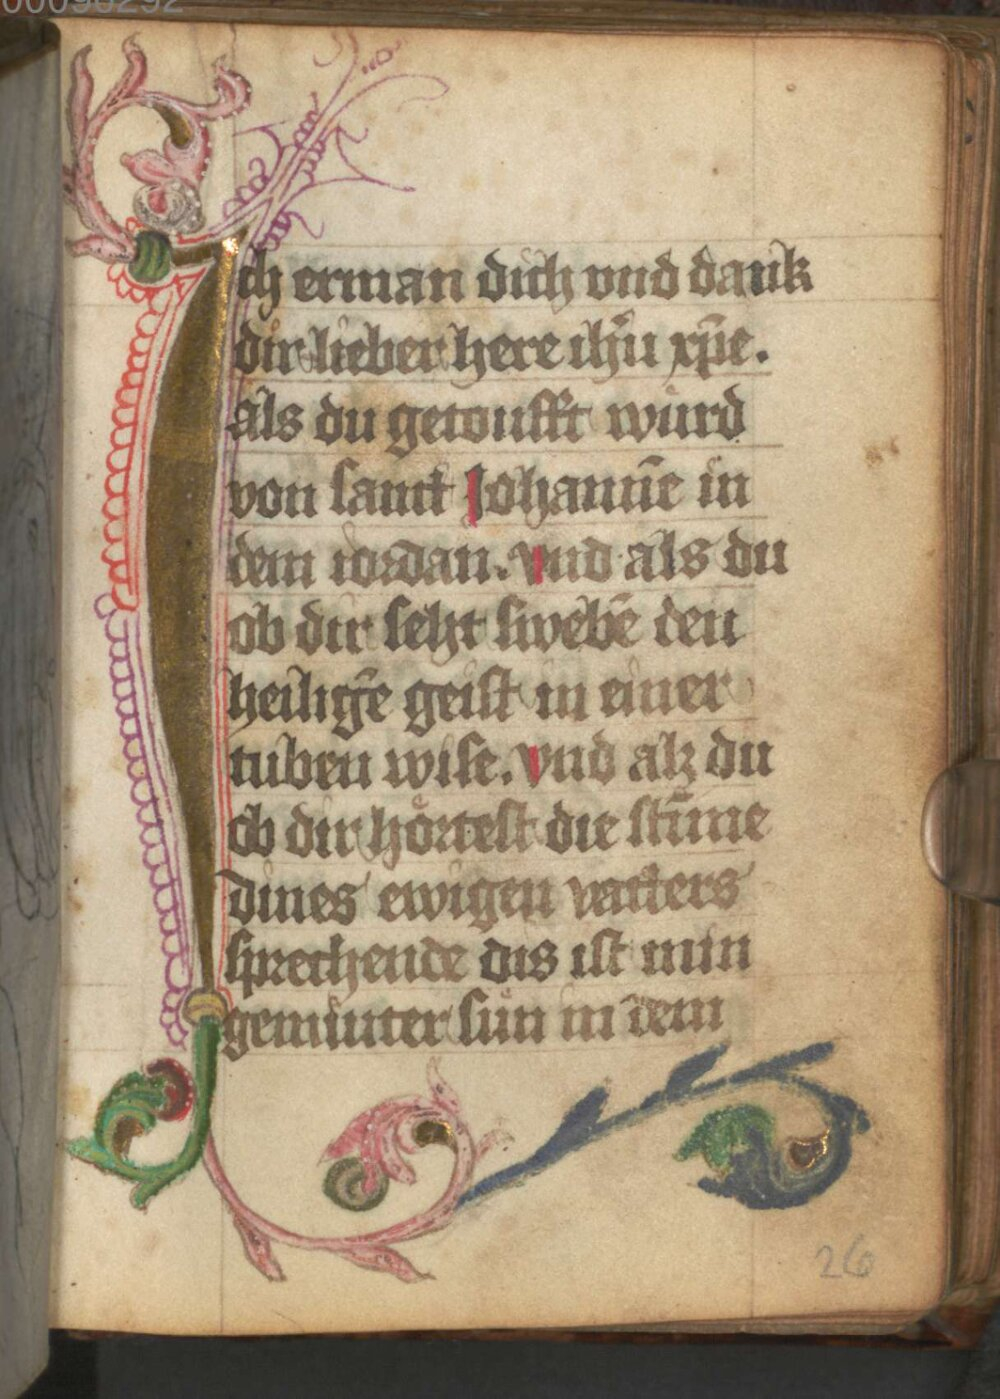 00090292
Ich erman dich vnd dank
dir lieber here ihu̅ xp̅e.
als du getoufft würd
von sant Johann̅e in
dem iordan. vnd als du
ob dir seht swebe̅ den
heilige̅ geist in einer
tuben wise. vnd alz du
ob dir hortest die stim̅e
dines ewigen vatters
sprechende dis ist min
geminter sun in dem
26